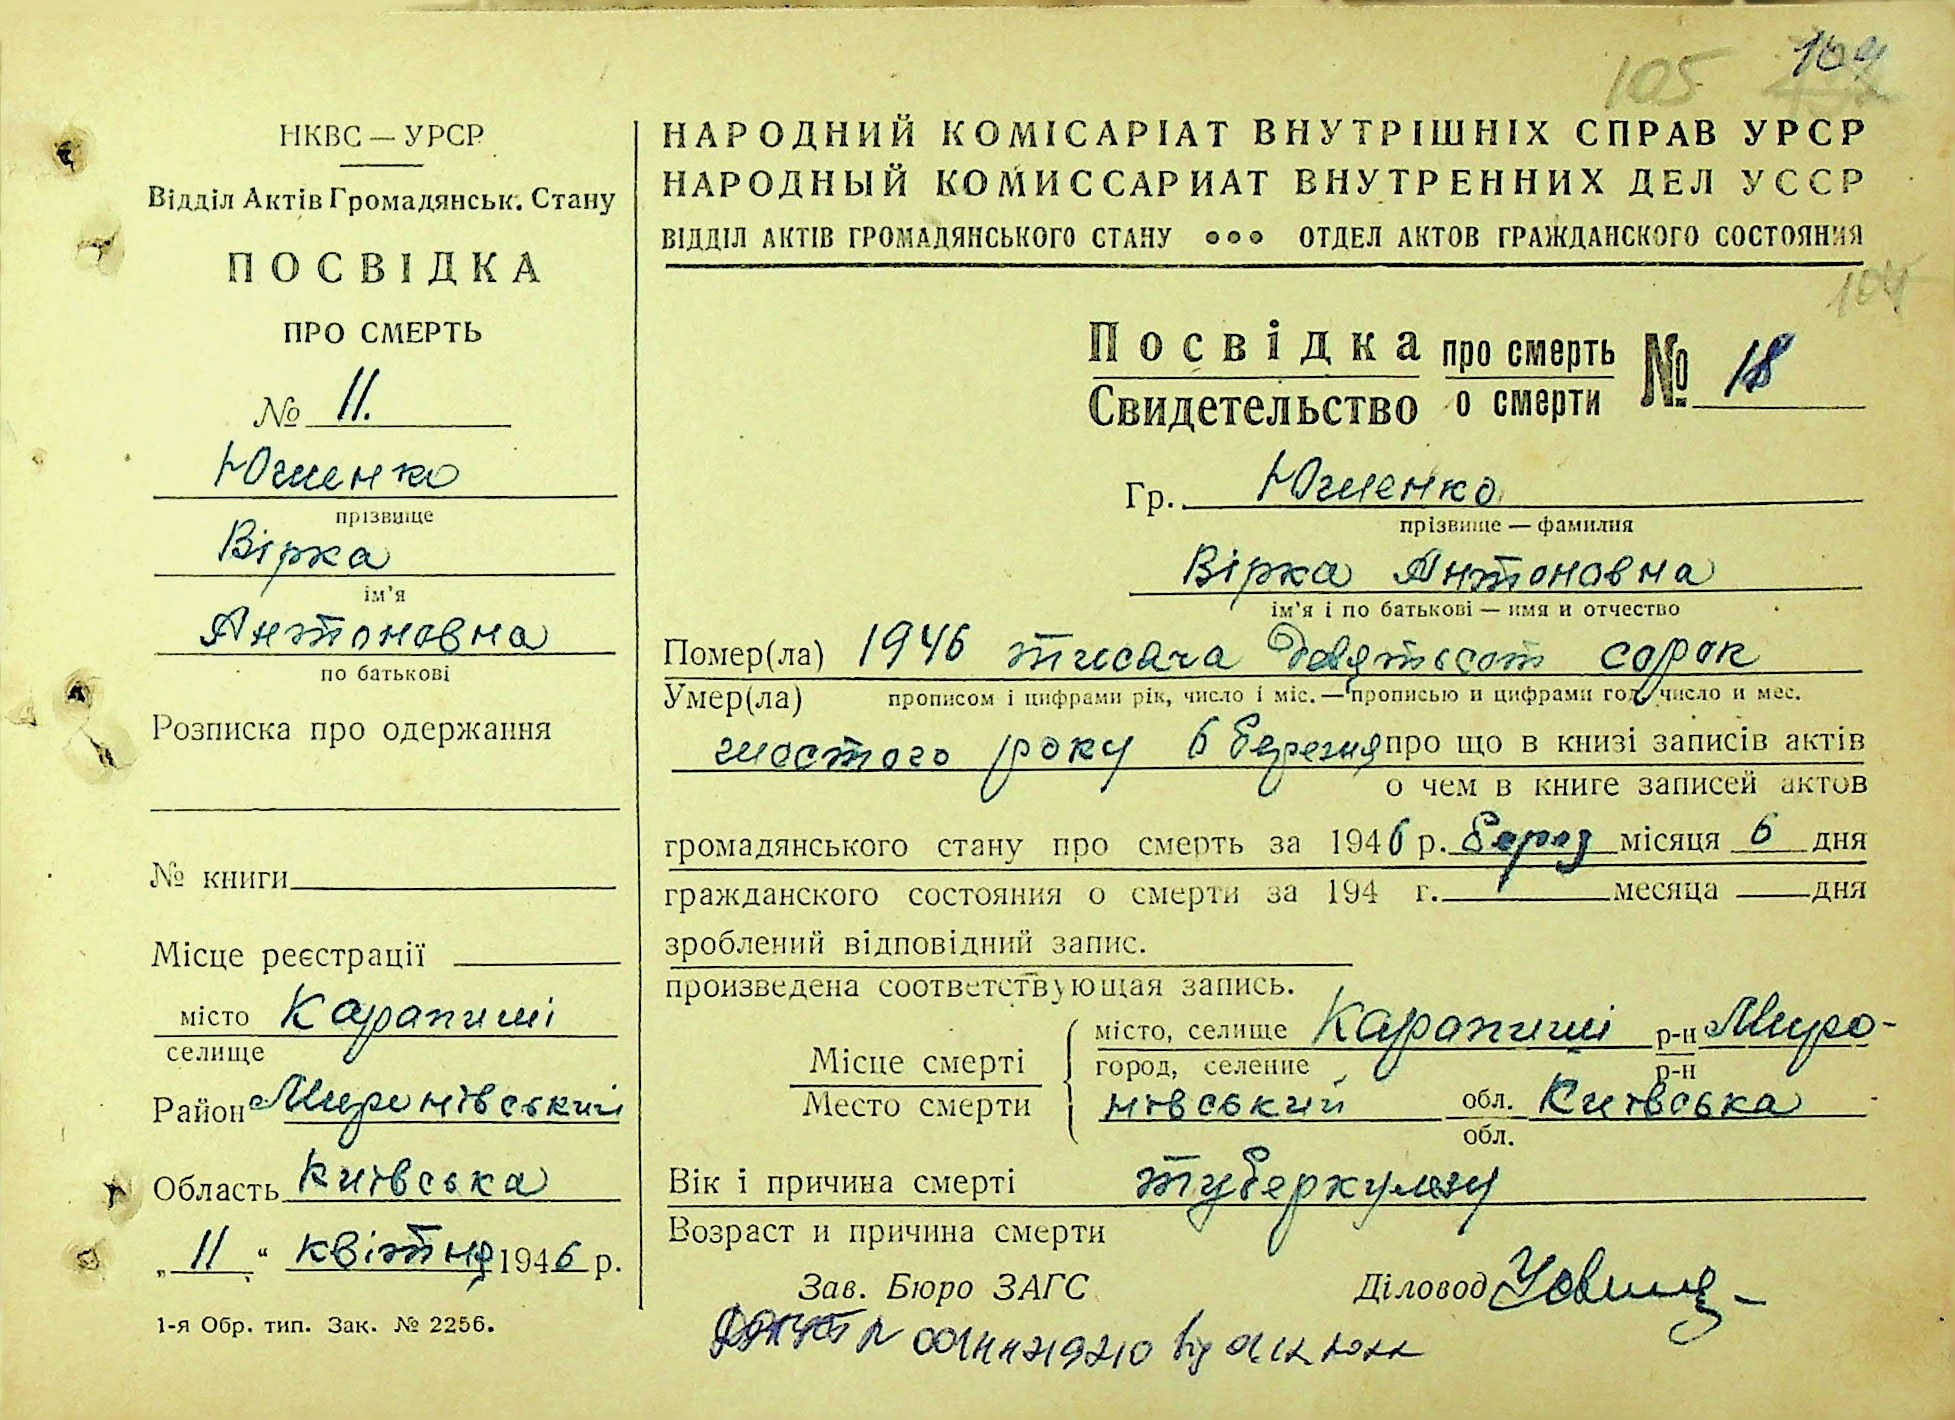 105 104
НКВС — УРСР
Відділ Актів Громадянськ. Стану
ПОСВІДКА
ПРО СМЕРТЬ
№ 11.
Югиенко
прізвище
Вірка
ім'я
Антоновна
по батькові
Розписка про одержання
№ книги
Місце реєстрації
місто Карапиші
селище
Район Миронівський
Область Київська
„ 11 " квітня 1946 р.
1-я Обр. тип. Зак. № 2256.
НАРОДНИЙ КОМІСАРІАТ ВНУТРІШНІХ СПРАВ УРСР
НАРОДНЫЙ КОМИССАРИАТ ВНУТРЕННИХ ДЕЛ УССР
ВІДДІЛ АКТІВ ГРОМАДЯНСЬКОГО СТАНУ ОТДЕЛ АКТОВ ГРАЖДАНСКОГО СОСТОЯНИЯ
104
Посвідка про смерть № 18
Свидетельство о смерти
Гр. Югиенко
прізвище — фамилия
Вірка Антоновна
ім'я і по батькові — имя и отчество
Помер(ла) 1946 тисяча девятьсот сорок
Умер(ла) прописом і цифрами рік, число і міс. — прописью и цифрами год, число и мес.
шостого року 6 березня про що в книзі записів актів
о чем в книге записей актов
громадянського стану про смерть за 1946 р. берез місяця 6 дня
гражданского состояния о смерти за 194 г. месяца дня
зроблений відповідний запис.
произведена соответствующая запись.
Місце смерті місто, селище Карапиші р-н Миро-
Место смерти город, селение р-н
нівський обл. Київська
обл.
Вік і причина смерті туберкульозу
Возраст и причина смерти
Зав. Бюро ЗАГС Діловод